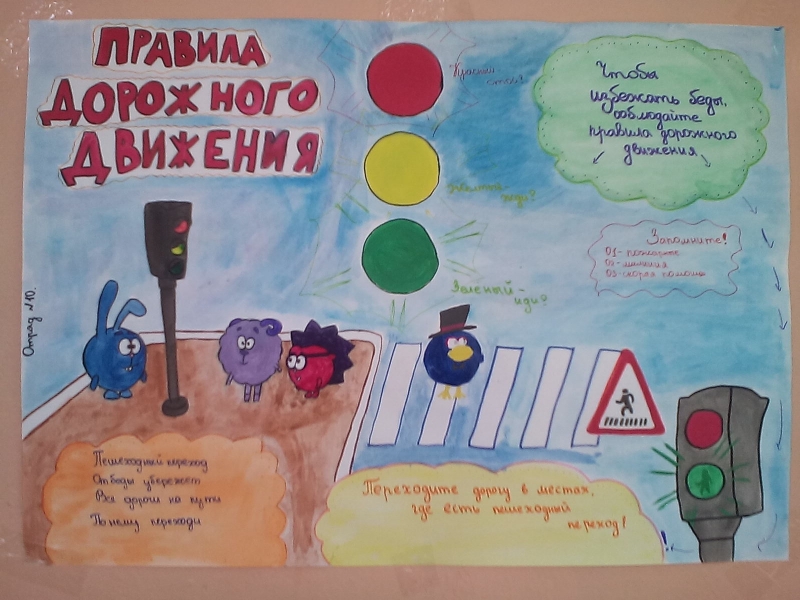 ПРАВИЛА
ДОРОЖНОГО
ДВИЖЕНИЯ
Красный-
стой!
Желтый-
жди?
Зеленый-
иди?
Чтобы
избежать беды,
соблюдайте
правила дорожного
движения
Запомните!
01- пожарные
02- милиция
03-скорая помощь
Отряд №10
Пешеходный переход
От беды убережет
Все дороги на пути
По нему переходи
Переходите дорогу в местах,
где есть пешеходный
переход!